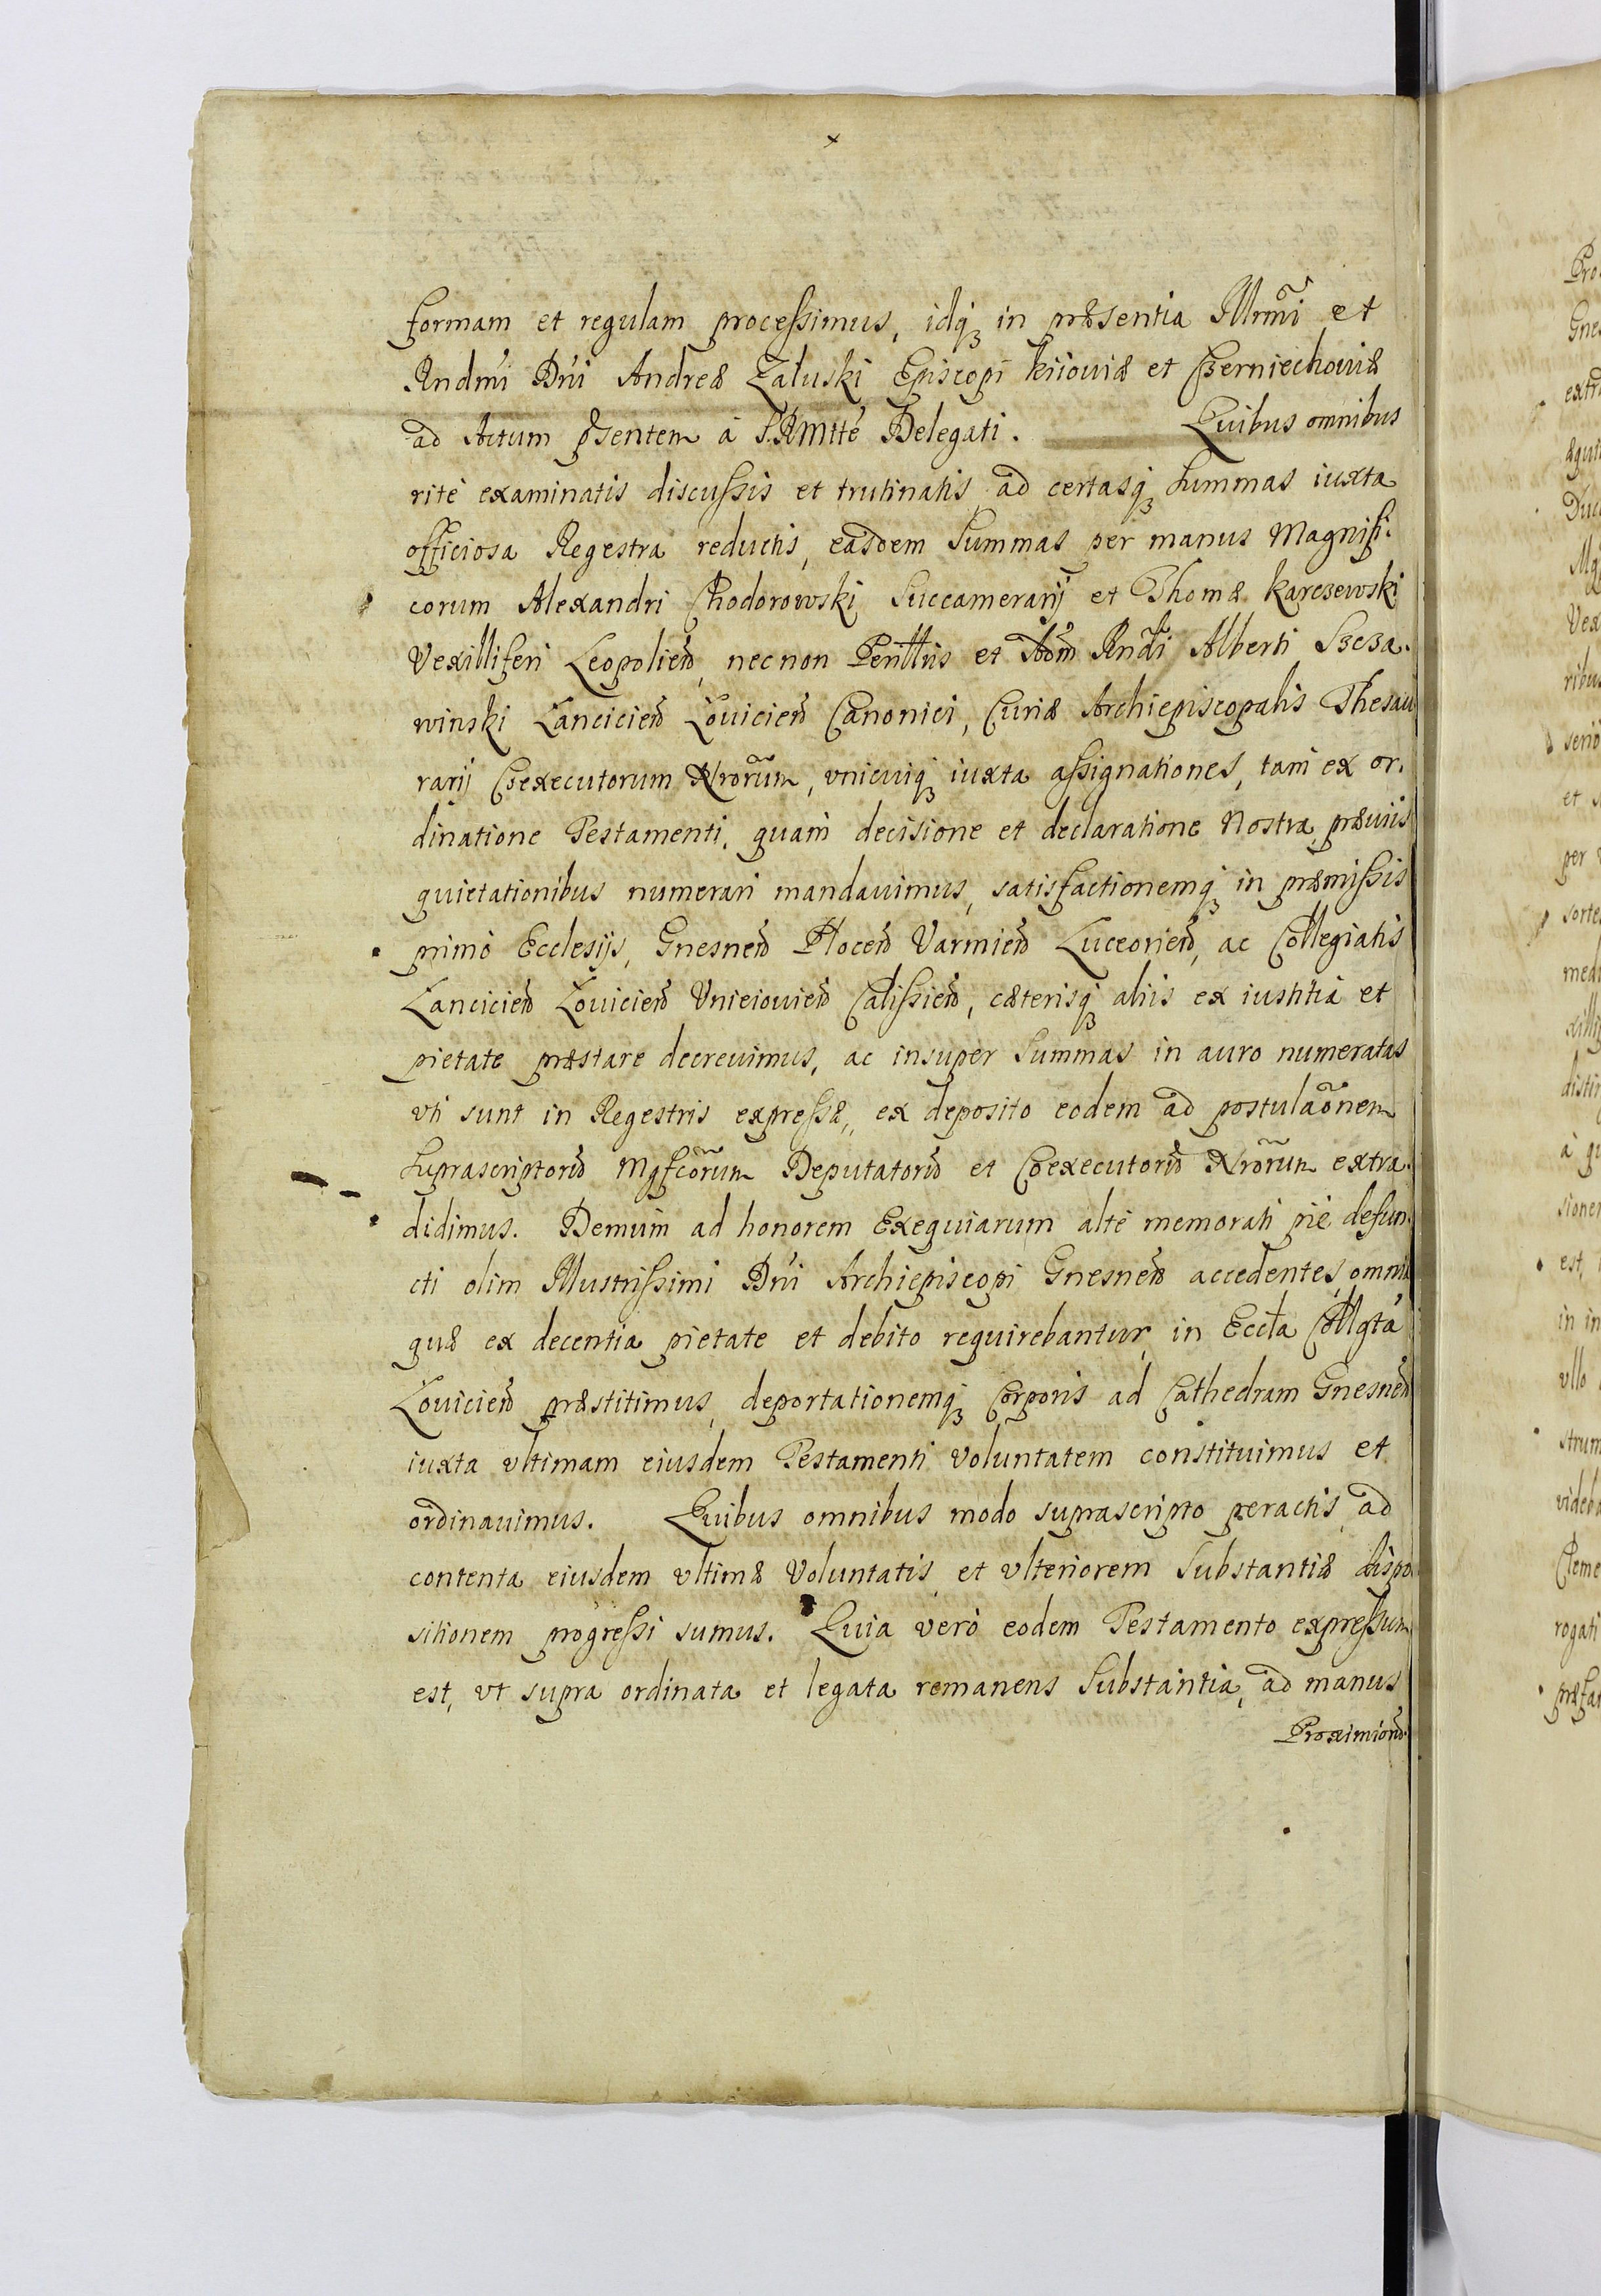 formam et regulam processimus, idq́ꝫ in præsentia Illrm̃i et
Rndm̃i Dńi Andreæ Załuski Episcopi kiiouiæ et Czerniechouiæ
ad Actum pr̃sentem á S.RMtté Delegati. Quibus omnibus
rité examinatis discussis et trutinatis ad certasq́ꝫ Summas iuxta
officiosa Regestra reductis, easdem Summas per manus Magnifi-
corum Alexandri Chodorowski Succamerarij et Thomæ Karczewski
Vexilliferi Leopolień, necnon Penll̃is et Adm̃ Rndi Alberti Szcza-
winski Lancicień Łouicień Canonici, Curiæ Archiepiscopalis Thesau
rarij Coexecutorum Nrõrum, vnicuiq́ꝫ iuxta assignationes, tam ex or-
dinatione Testamenti, quam decisione et declaratione Nostra, præuiis
quietationibus numerari mandauimus, satisfactionemq́ꝫ in præmissis
primó Ecclesijs, Gneśneń Płoceń Varmień Luceorień, ac Collegiatis
Lancicień Łouicień Vnieiouień Calissień, cæterisq́ꝫ aliis ex iustitia et
pietate præstare decreuimus, ac insuper Summas in auro numeratas
vti sunt in Regestris expressæ, ex deposito eodem ad postulaõnem
Suprascriptorũ Mgfcõrum Deputatorũ et Coexecutorũ Nrõrum extra-
didimus. Demúm ad honorem Exequiarum alté memorati pié defun-
cti olim Illustrissimi Dńi Archiepiscopi Gnesneń accedentes, omnia
quæ ex decentia pietate et debito requirebantur, in Eccła Collgta
Łouicień præstitimus, deportationemq́ꝫ Corporis ad Cathedram Gnesneń
iuxta vltimam eiusdem Testamenti Voluntatem constituimus et
ordinauimus. Quibus omnibus modo suprascripto peractis, ad
contenta eiusdem vltimæ Voluntatis et vlteriorem Substantiæ dispo
sitionem progressi sumus. Quia veró eodem Testamento expressum
est, vt supra ordinata et legata remanens Substantia, ad manus
Proximiorũ